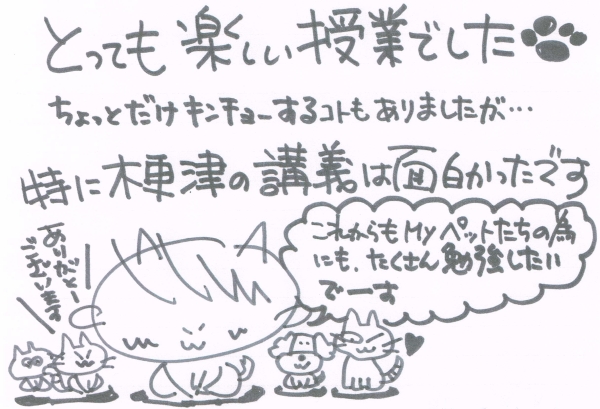 とっても楽しい授業でした
ちょっとだけキンチョーするコトもありましたが…
特に木更津の講義は面白かったです
ありがとー
ございます
これからもMyペットたちの為
にも、たくさん勉強したい
でーす